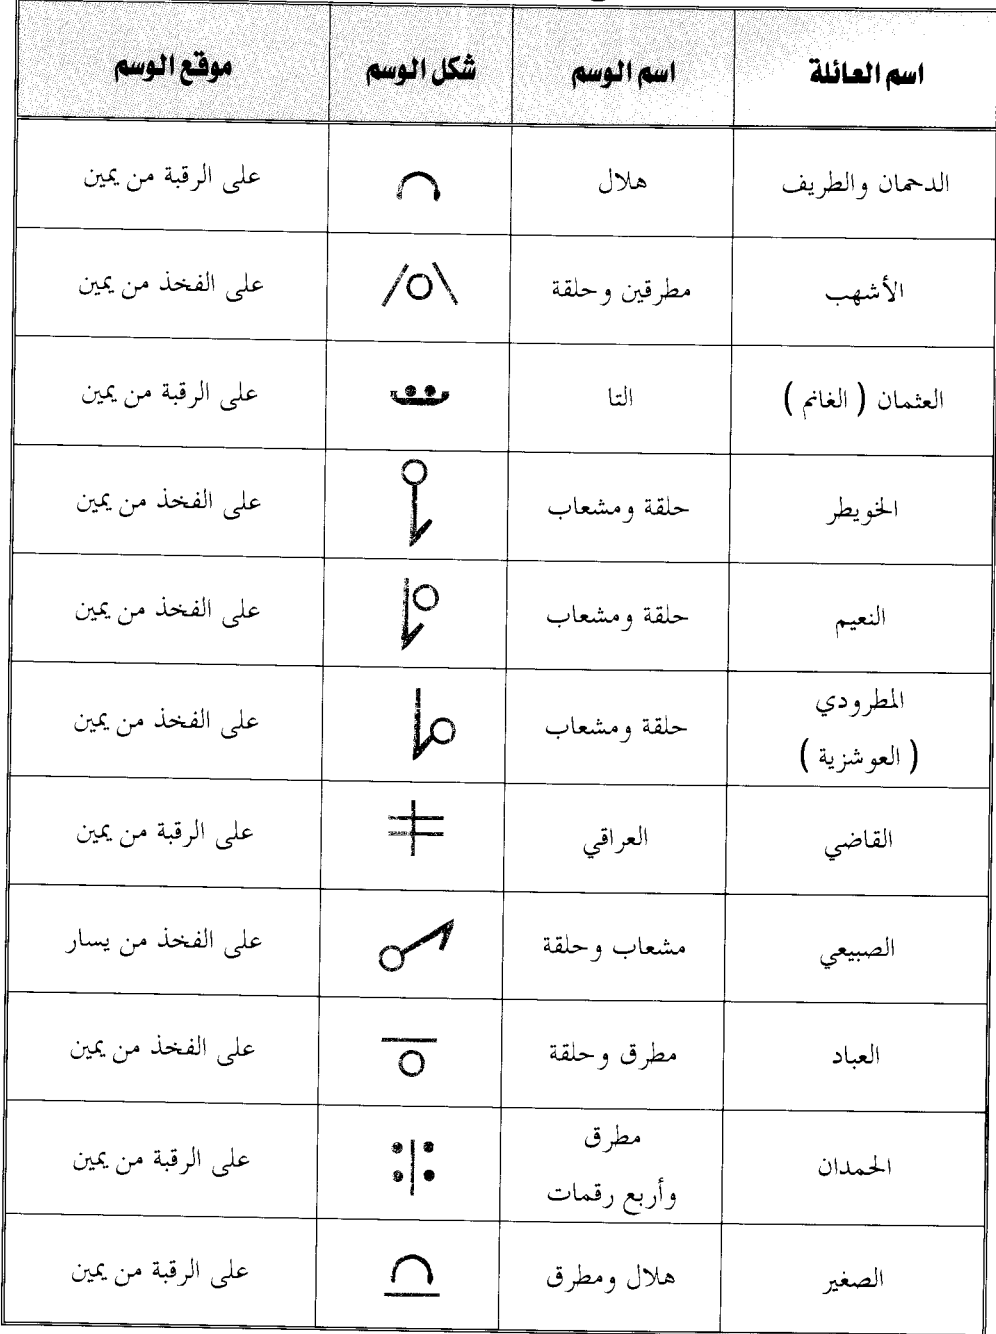 اسم العائلة اسم الوسم شكل الوسم موقع الوسم
الدحمان والطريف هلال على الرقبة من يمين
الأشهب مطرقين وحلقة على الفخذ من يمين
العثمان ( الغانم ) التا على الرقبة من يمين
الخويطر حلقة ومشعاب على الفخذ من يمين
النعيم حلقة ومشعاب على الفخذ من يمين
المطرودي
( العوشزية ) حلقة ومشعاب على الفخذ من يمين
القاضي العراقي على الرقبة من يمين
الصبيعي مشعاب وحلقة على الفخذ من يسار
العباد مطرق وحلقة على الفخذ من يمين
الحمدان مطرق
وأربع رقمات على الرقبة من يمين
الصغير هلال ومطرق على الرقبة من يمين